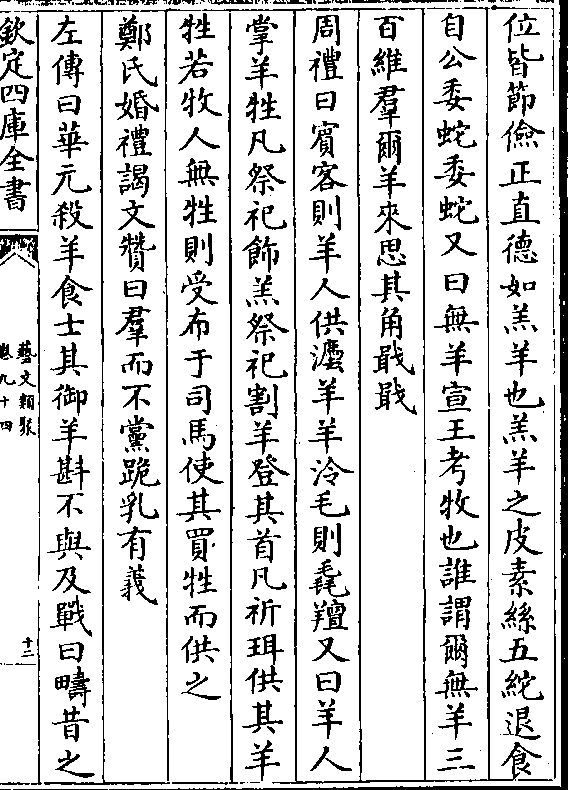 位皆節儉正直德如羔羊也羔羊之皮素絲五紽退食
自公委蛇委蛇又曰無羊宣王考牧也誰謂爾無羊三
百維羣爾羊來思其角戢戢
周禮曰賔客則羊人供灋羊羊泠毛則毳羶又曰羊人
掌羊牲凡祭祀飾羔祭祀割羊登其首凡祈珥供其羊
牲若牧人無牲則受布于司馬使其買牲而供之
鄭氏婚禮謁文贊曰羣而不黨跪乳有義
左傳曰華元殺羊食士其御羊斟不與及戰曰疇昔之
欽定四庫全書
藝文類聚
卷九十四
十二